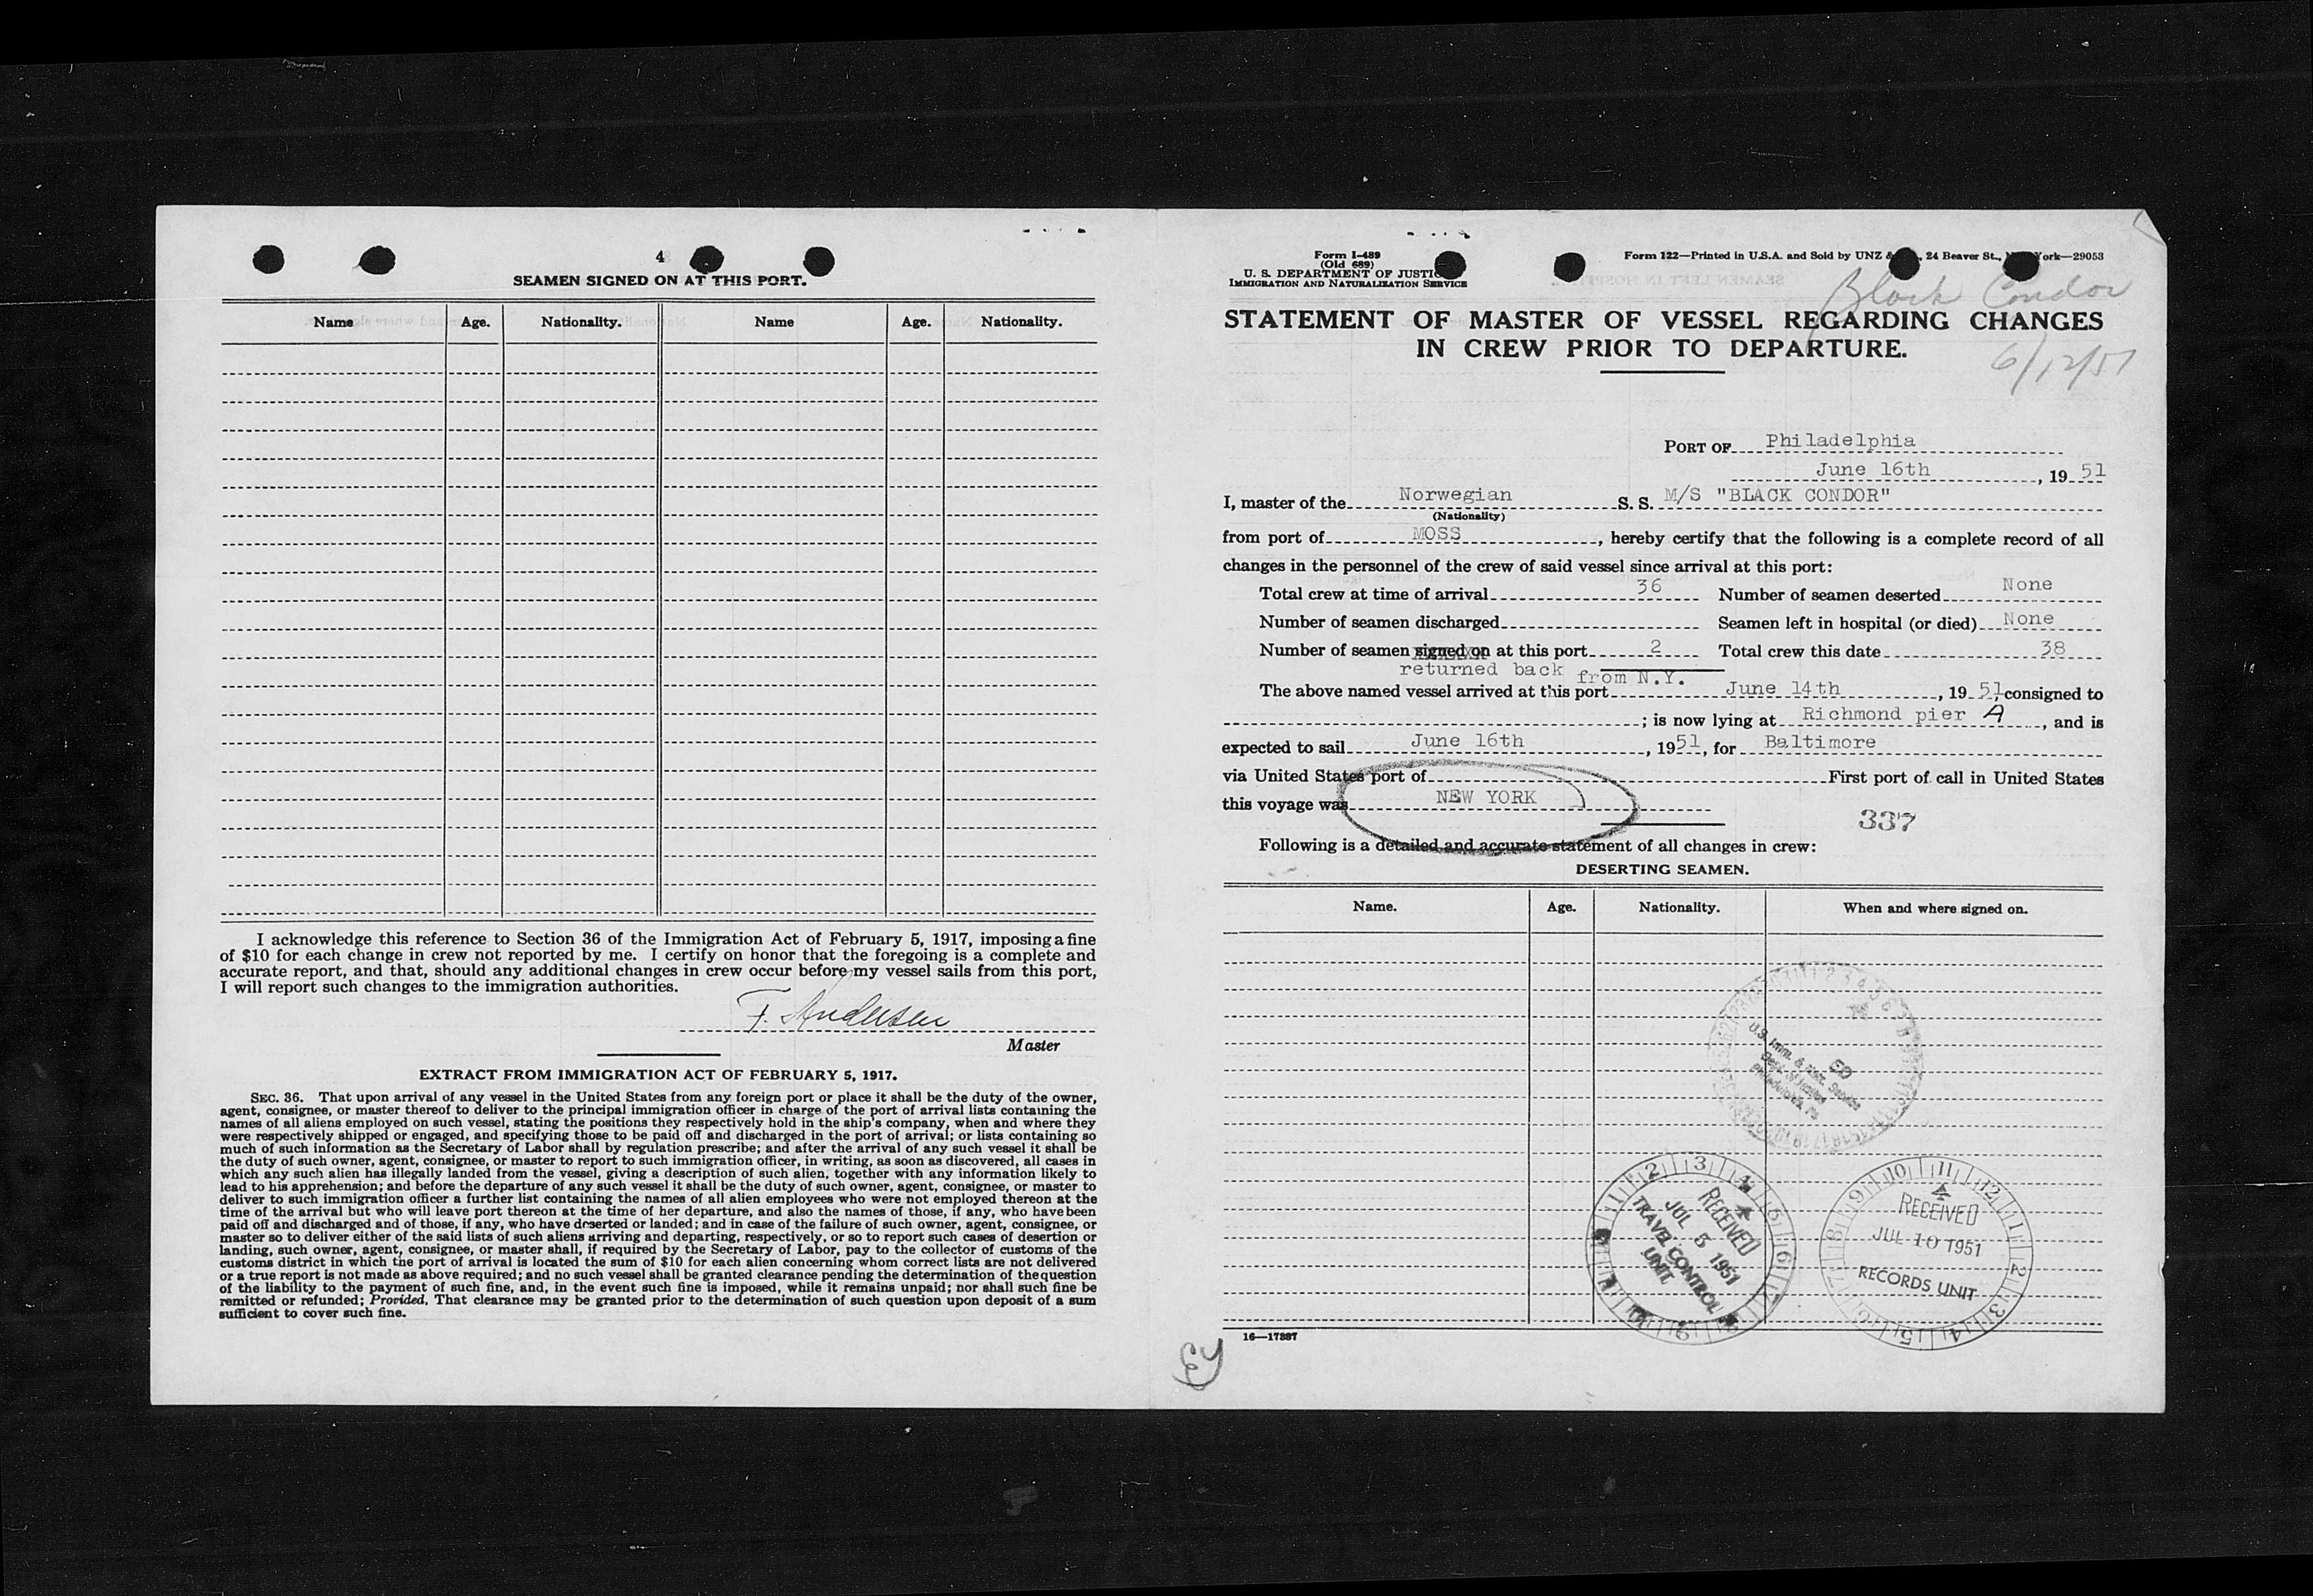 4
SEAMEN SIGNED ON AT THIS PORT.
Name Age. Nationality. Name Age. Nationality.
I acknowledge this reference to Section 36 of the Immigration Act of February 5, 1917, imposing a fine
of $10 for each change in crew not reported by me. I certify on honor that the foregoing is a complete and
accurate report, and that, should any additional changes in crew occur before my vessel sails from this port,
I will report such changes to the immigration authorities.
F. Andersen
Master
EXTRACT FROM IMMIGRATION ACT OF FEBRUARY 5, 1917.
SEC. 36. That upon arrival of any vessel in the United States from any foreign port or place it shall be the duty of the owner,
agent, consignee, or master thereof to deliver to the principal immigration officer in charge of the port of arrival lists containing the
names of all aliens employed on such vessel, stating the positions they respectively hold in the ship's company, when and where they
were respectively shipped or engaged, and specifying those to be paid off and discharged in the port of arrival; or lists containing so
much of such information as the Secretary of Labor shall by regulation prescribe; and after the arrival of any such vessel it shall be
the duty of such owner, agent, consignee, or master to report to such immigration officer, in writing, as soon as discovered, all cases in
which any such alien has illegally landed from the vessel, giving a description of such alien, together with any information likely to
lead to his apprehension; and before the departure of any such vessel it shall be the duty of such owner, agent, consignee, or master to
deliver to such immigration officer a further list containing the names of all alien employees who were not employed thereon at the
time of the arrival but who will leave port thereon at the time of her departure, and also the names of those, if any, who have been
paid off and discharged and of those, if any, who have deserted or landed; and in case of the failure of such owner, agent, consignee, or
master so to deliver either of the said lists of such aliens arriving and departing, respectively, or so to report such cases of desertion or
landing, such owner, agent, consignee, or master shall, if required by the Secretary of Labor, pay to the collector of customs of the
customs district in which the port of arrival is located the sum of $10 for each alien concerning whom correct lists are not delivered
or a true report is not made as above required; and no such vessel shall be granted clearance pending the determination of the question
of the liability to the payment of such fine, and, in the event such fine is imposed, while it remains unpaid; nor shall such fine be
remitted or refunded; Provided, That clearance may be granted prior to the determination of such question upon deposit of a sum
sufficient to cover such fine.
Form I-489
(Old 689)
U. S. DEPARTMENT OF JUSTIC
IMMIGRATION AND NATURALIZATION SERVICE
Form 122—Printed in U.S.A. and Sold by UNZ & 24 Beaver St., N York—29053
Black Condor
STATEMENT OF MASTER OF VESSEL REGARDING CHANGES
IN CREW PRIOR TO DEPARTURE.
6/12/51
PORT OF Philadelphia
June 16th, 19 51
I, master of the Norwegian S. S. M/S "BLACK CONDOR"
(Nationality)
from port of MOSS, hereby certify that the following is a complete record of all
changes in the personnel of the crew of said vessel since arrival at this port:
Total crew at time of arrival 36 Number of seamen deserted None
Number of seamen discharged Seamen left in hospital (or died) None
Number of seamen signed on at this port 2 Total crew this date 38
returned back from N.Y.
The above named vessel arrived at this port June 14th, 19 51, consigned to
; is now lying at Richmond pier A, and is
expected to sail June 16th, 1951, for Baltimore
via United States port of First port of call in United States
this voyage was NEW YORK
337
Following is a detailed and accurate statement of all changes in crew:
DESERTING SEAMEN.
Name. Age. Nationality. When and where signed on.
U.S. Imm. & Nat. Service
Dept. of Justice
Philadelphia, Pa.
RECEIVED
JUL 5 1951
TRAVEL CONTROL
UNIT
RECEIVED
JUL 10 1951
RECORDS UNIT
16—17887